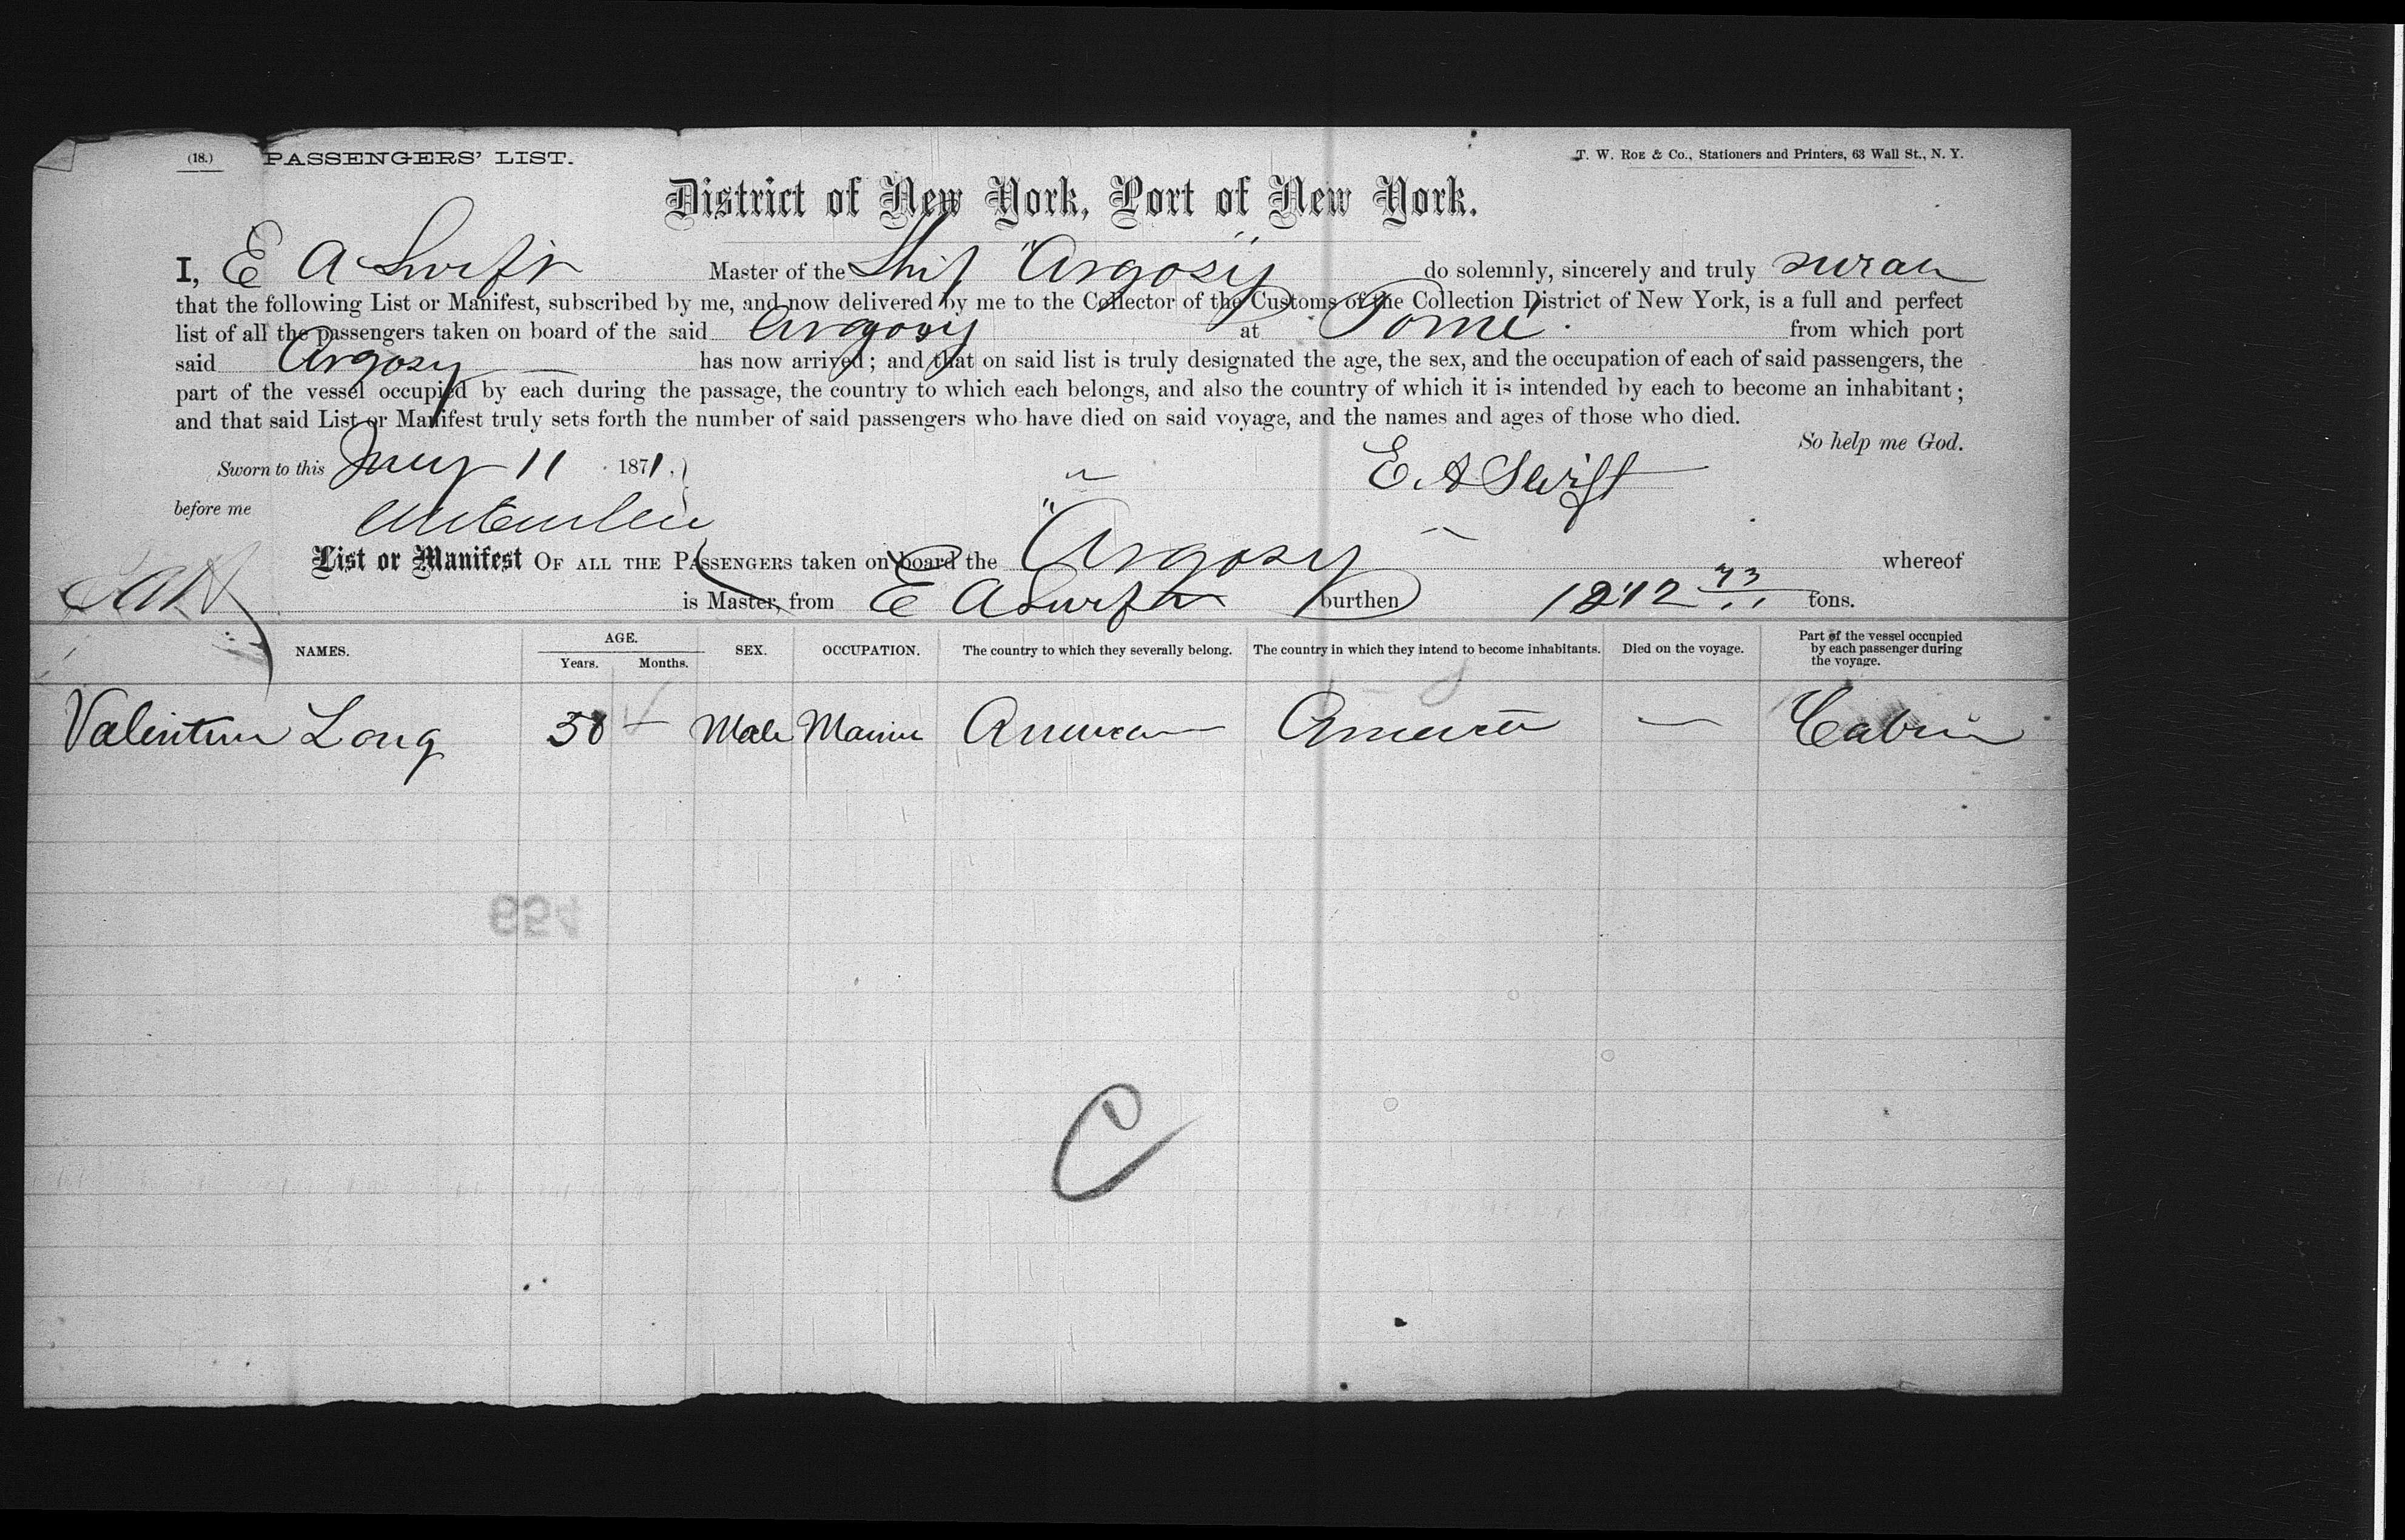 (18.) PASSENGERS' LIST. T. W. ROE & Co., Stationers and Printers, 63 Wall St., N. Y.
District of New York, Port of New York.
I, E A Swift Master of the Ship "Argosy" do solemnly, sincerely and truly swear
that the following List or Manifest, subscribed by me, and now delivered by me to the Collector of the Customs of the Collection District of New York, is a full and perfect
list of all the passengers taken on board of the said Argosy at Tomé from which port
said Argosy has now arrived; and that on said list is truly designated the age, the sex, and the occupation of each of said passengers, the
part of the vessel occupied by each during the passage, the country to which each belongs, and also the country of which it is intended by each to become an inhabitant;
and that said List or Manifest truly sets forth the number of said passengers who have died on said voyage, and the names and ages of those who died.
So help me God.
Sworn to this 11 1871.
E. A Swift
before me
List or Manifest OF ALL THE PASSENGERS taken on board the "Argosy" whereof
is Master, from E A Swift burthen tons.
NAMES. AGE. Years. Months. SEX. OCCUPATION. The country to which they severally belong. The country in which they intend to become inhabitants. Died on the voyage. Part of the vessel occupied by each passenger during the voyage.
Long — Male America — Cabin
654
C